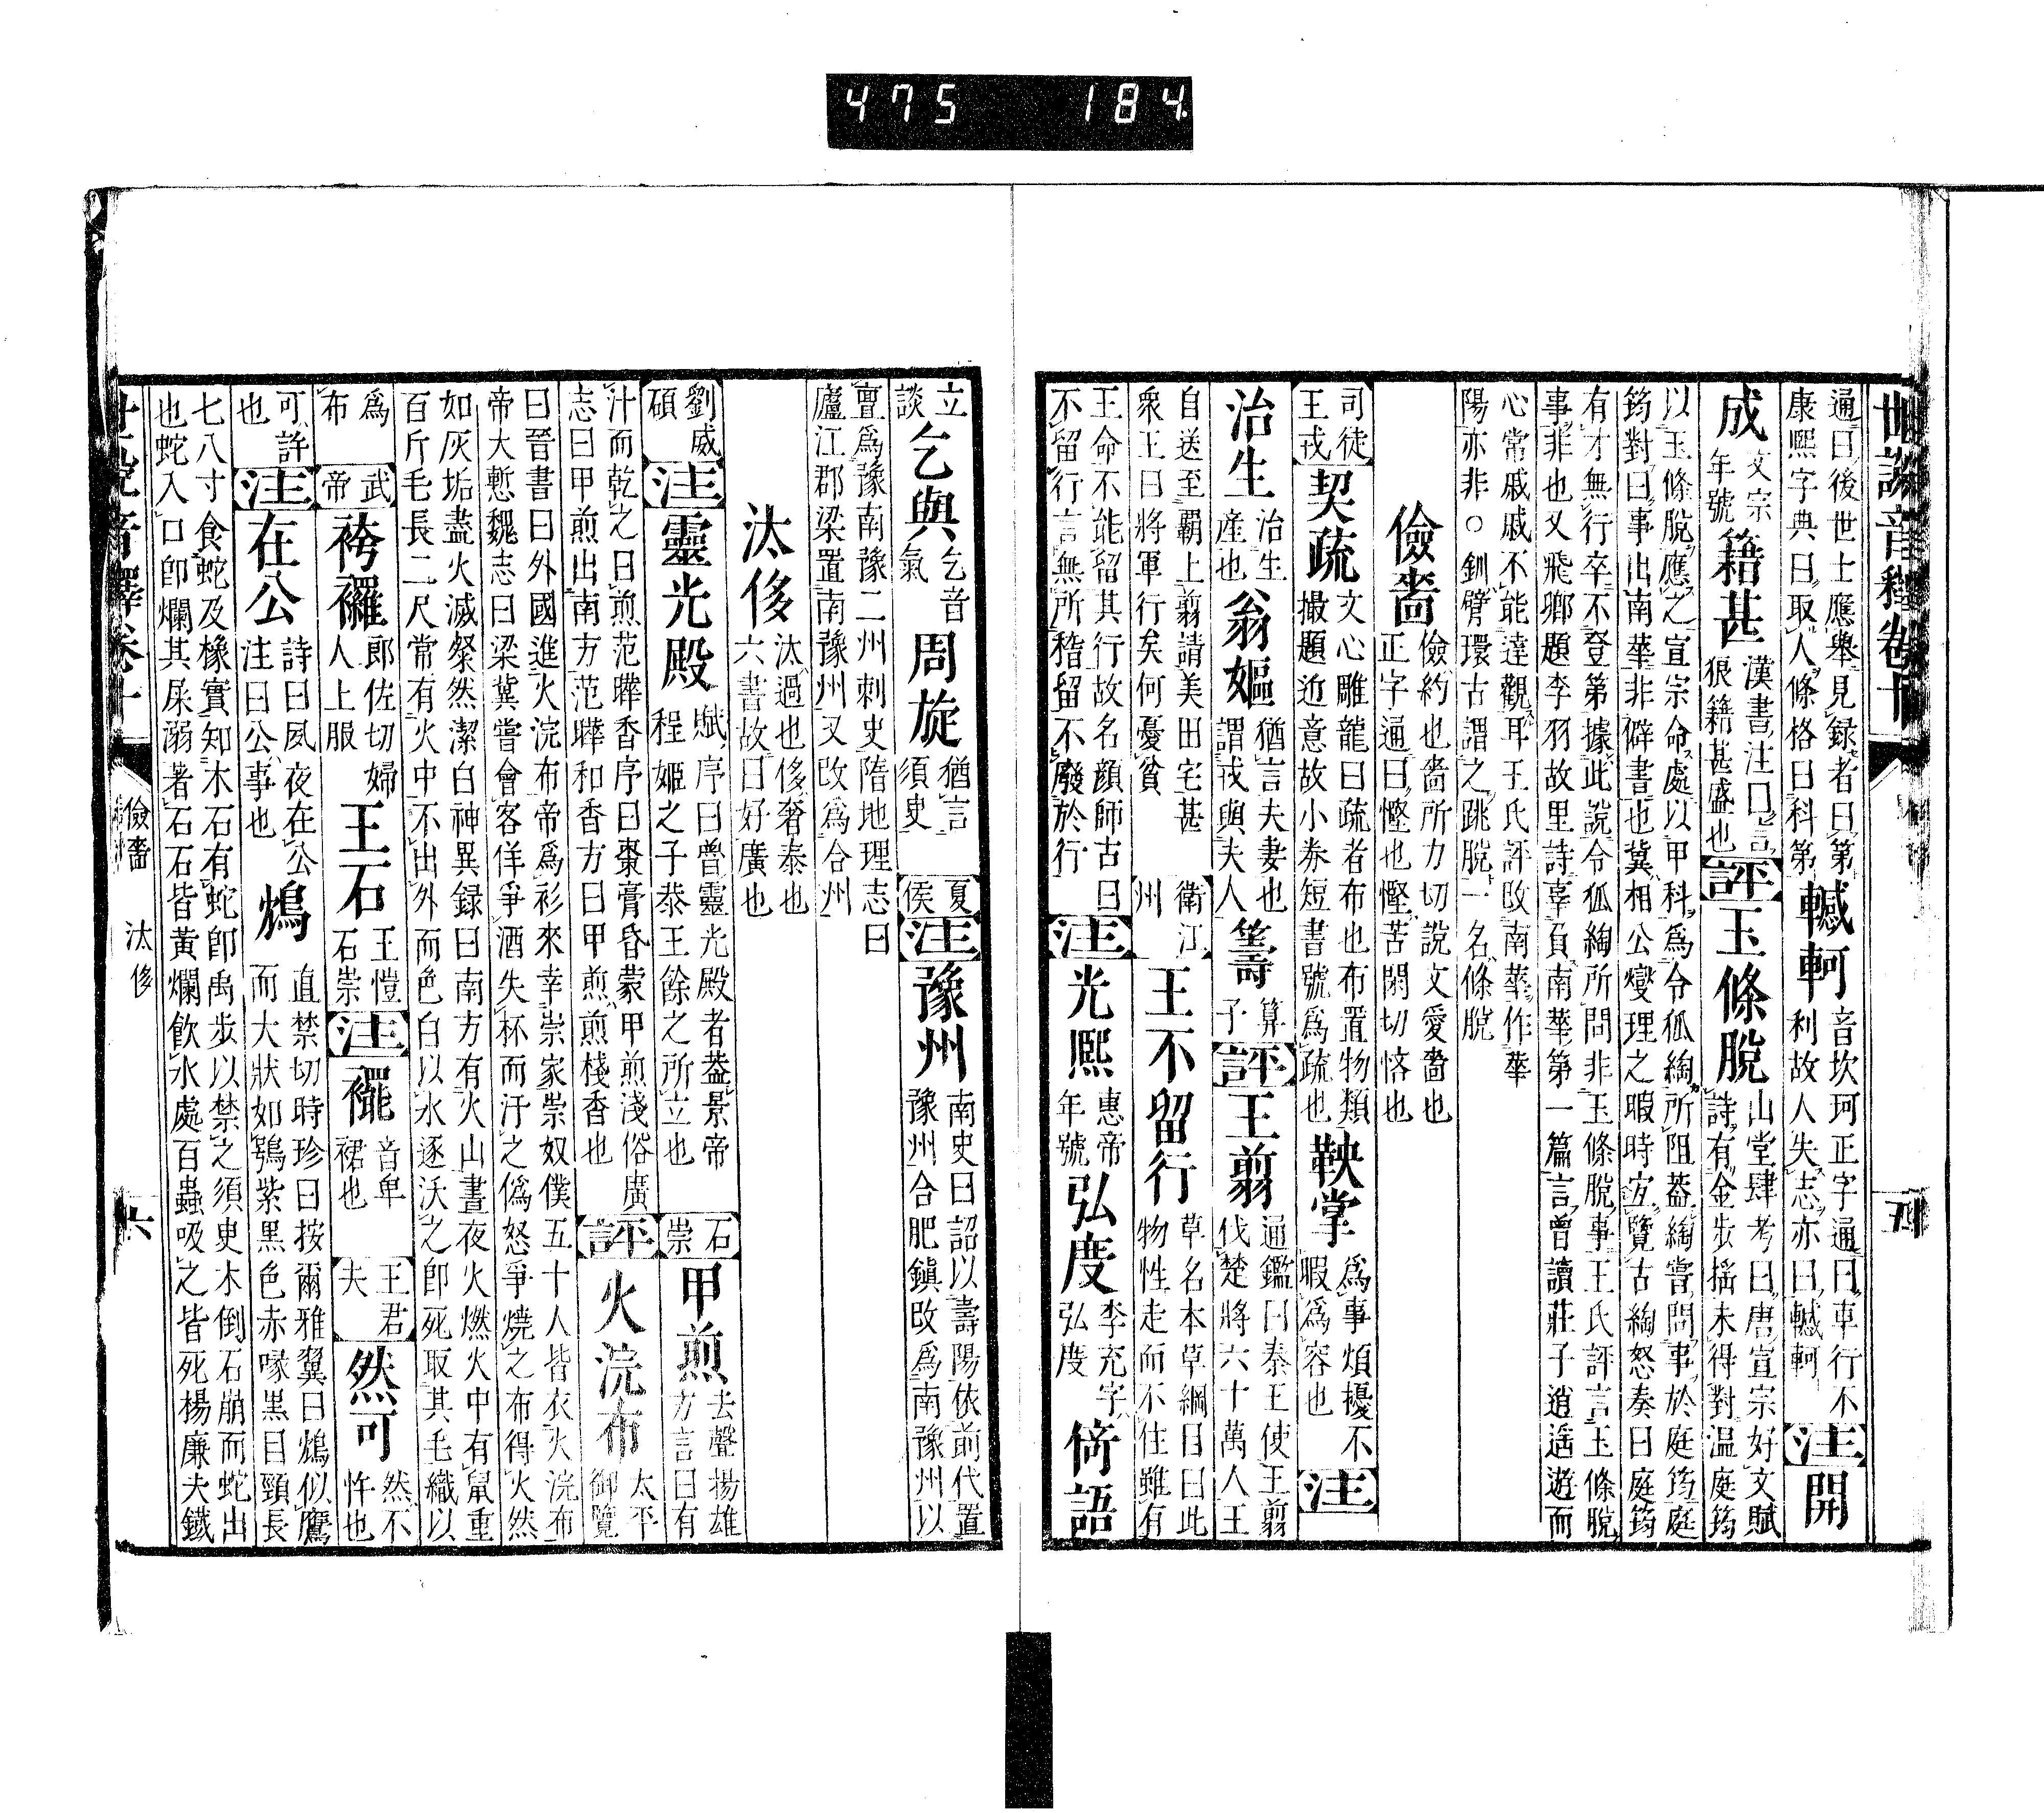 475 184
世說音釋卷十
五
通曰後世士應舉見録者曰第
康熙字典曰取人條格曰科第
轗軻
音坎珂正字通曰車行不
利故人失志亦曰轗軻
注
開
成
文宗
年號
籍甚
漢書注
狼籍甚盛也
評
玉條脫
山堂肆考曰唐宣宗好文賦
詩有金步搖未得對温庭筠
以玉條脫應之宣宗命處以甲科為令狐綯所阻葢綯嘗問事於庭筠庭
筠對曰事出南華非僻書也冀相公燮理之暇時宜覽古綯怒奏曰庭筠
有才無行卒不登第據此說令狐綯所問非玉條脫事王氏評言玉條脫
事非也又飛卿題李羽故里詩辜負南華第一篇言曾讀莊子逍遙遊而
心常戚戚不能達觀耳王氏評改南華作華
陽亦非○釧臂環古謂之跳脫一名條脫
儉嗇
儉約也嗇所力切說文愛嗇也
正字通曰慳也慳苦閑切恡也
司徒
王戎
契疏
文心雕龍曰疏者布也布置物類
撮題近意故小券短書號爲疏也
鞅掌
爲事煩擾不
暇爲容也
注
治生
治生
産也
翁嫗
猶言夫妻也
謂戎與夫人
籌
算
子
評
王翦
通鑑曰秦王使王翦
伐楚將六十萬人王
自送至覇上翦請美田宅甚
衆王曰將軍行矣何憂貧
衛江
州
王不留行
草名本草綱目曰此
物性走而不住雖有
王命不能留其行故名顔師古曰
不留行言無所稽留不廢於行
注
光熙
惠帝
年號
弘度
李充字
弘度
倚語
立
談
乞與
乞音
氣
周旋
猶言
須史
夏
侯
注
豫州
南史曰詔以壽陽依前代置
豫州合肥鎭改爲南豫州以
亶爲豫南豫二州刺史隋地理志曰
廬江郡梁置南豫州又改爲合州
汰侈
汰過也侈奢泰也
六書故曰好廣也
劉威
碩
注
靈光殿
賦序曰魯靈光殿者葢景帝
程姬之子恭王餘之所立也
石
崇
甲煎
去聲揚雄
方言曰有
汁而乾之曰煎范曄香序曰棗膏昏蒙甲煎淺俗廣
志曰甲煎出南方范曄和香方曰甲煎煎棧香也
評
火浣布
太平
御覽
曰晉書曰外國進火浣布帝爲衫來幸崇家崇奴僕五十人皆衣火浣布
帝大慙魏志曰梁冀嘗會客佯爭酒失杯而汙之僞怒爭燒之布得火然
如灰垢盡火滅粲然潔白神異録曰南方有火山晝夜火燃火中有鼠重
百斤毛長二尺常有火中不出外而色白以水逐沃之卽死取其毛織以
爲
布
武
帝
袴襬
郎佐切婦
人上服
王石
王愷
石崇
注
襬
音卑
裙也
王君
夫
然可
然不
忤也
可許
也
注
在公
詩曰夙夜在公
注曰公事也
鴆
直禁切時珍曰按爾雅翼曰鴆似鷹
而大狀如鴞紫黑色赤喙黑目頸長
七八寸食蛇及橡實知木石有蛇卽禹步以禁之須史木倒石崩而蛇出
也蛇入口卽爛其屎溺著石石皆黃爛飮水處百蟲吸之皆死楊廉夫鐵
世說音釋卷十
儉嗇
汰侈
六